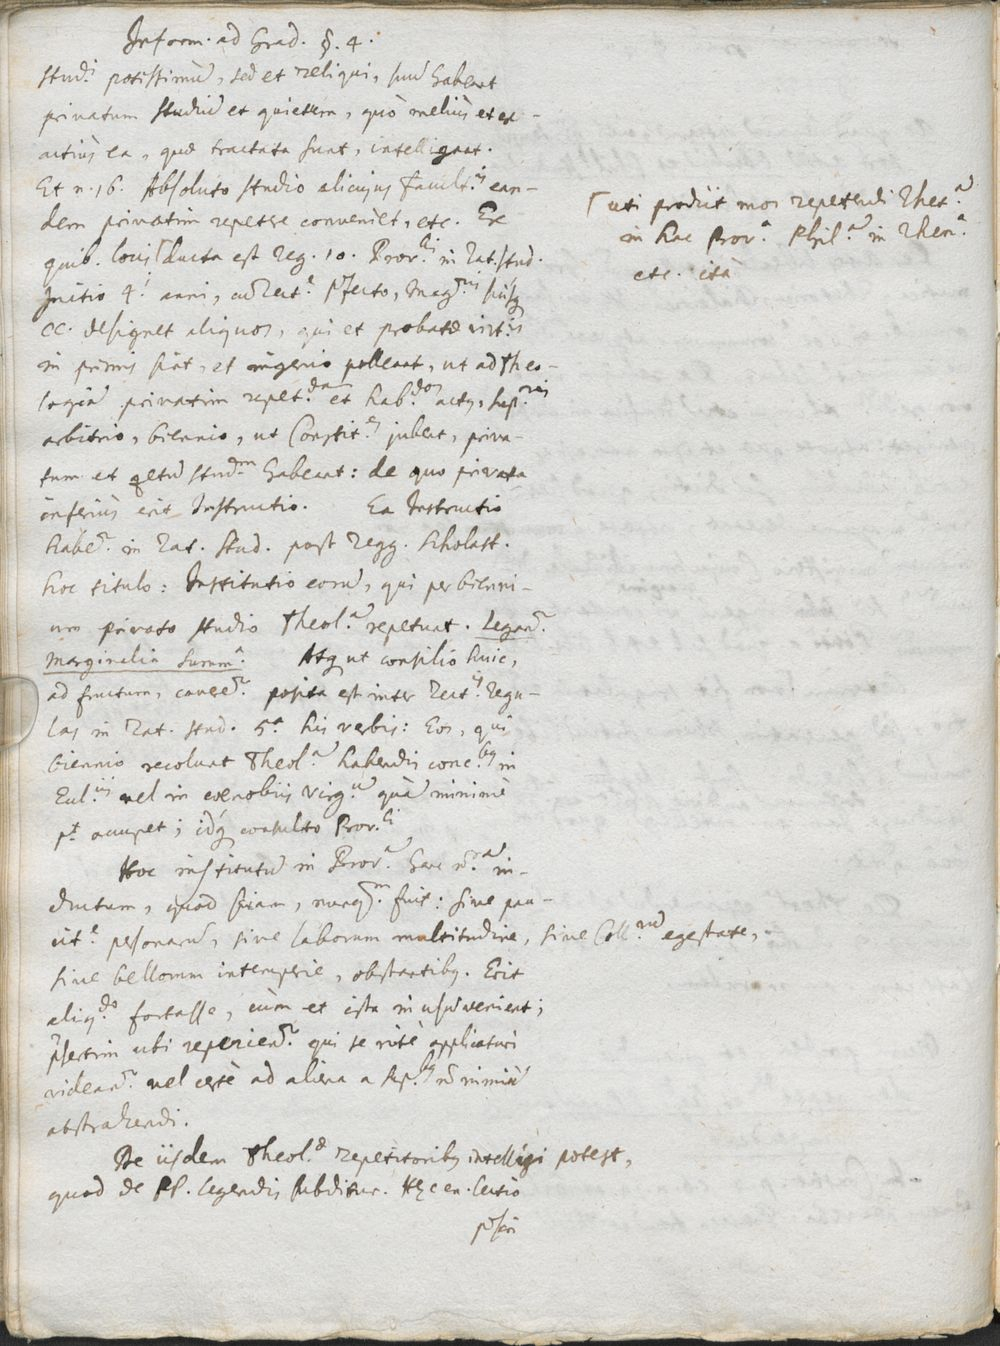 Inform. ad Grad. §. 4.
studi potissimũ, sed et reliqui, suũ habeant
privatum studiũ et quietum, quò meliùs et ex-
actiùs ea, quæ tractata sunt, intelligant.
Et n. 16. Absoluto studio alicujus Facult.is ean-
dem privatim repetere conveniet, etc. Ex
quib. locis ⌈ ducta est reg. 10. Prov.lis in Rat. stud.
⌈ uti prodiit mos repetendi Rhet.a
in hac Prov.a Phil.a in Rhen.a
etc. ità
Initio 4.i anni, cũ Rect.e Præfecto, Mag.ris suisq
CC. designet aliquos, qui et probatæ virt.is
in primis sint, et ingenio polleant, ut ad Theo-
logiã privatim repet.dam et hab.dos actus, Sup.ris
arbitrio, biennio, ut Constit.es jubent, priva-
tum et qetũ stud.m habeant: de quo privata
inferiùs erit Instructio. Ea Instructio
habe.r in Rat. Stud. post regg. Scholast.
hoc titulo: Institutio eorũ, qui per bienni-
um privato studio Theol.a repetunt. Legan.r
marginalia Summ.a. Atq ut consilio huic,
ad fructum, cavee.r posita est inter Rect.is regu-
las in Rat. Stud. 5.a his verbis: Eos, qui
biennio recolunt Theol.a habendis conc.bus in
Eccl.iis vel in cœnobiis Virg.m quàm minimè
p.t occupet; idq consulto Prov.li
Hoc institutũ in Prov.a hac n.ra in-
ductum, quod sciam, nunq.m fuit: sive pau-
cit.e personarũ, sive laborum multitudine, sive Coll.rum egestate,
sive bellorum intemperie, obstantibus. Erit
aliq.do fortasse, cùm et ista in usũ venient;
præsertim ubi reperien.r qui se ritè applicaturi
videan.r vel certè ad aliena a Sup.bus nõ nimiũ
abstrahendi.
De iisdem Theol.æ repetitoribus intelligi potest,
quod de PP. legendis subditur. Hæc ea lectio